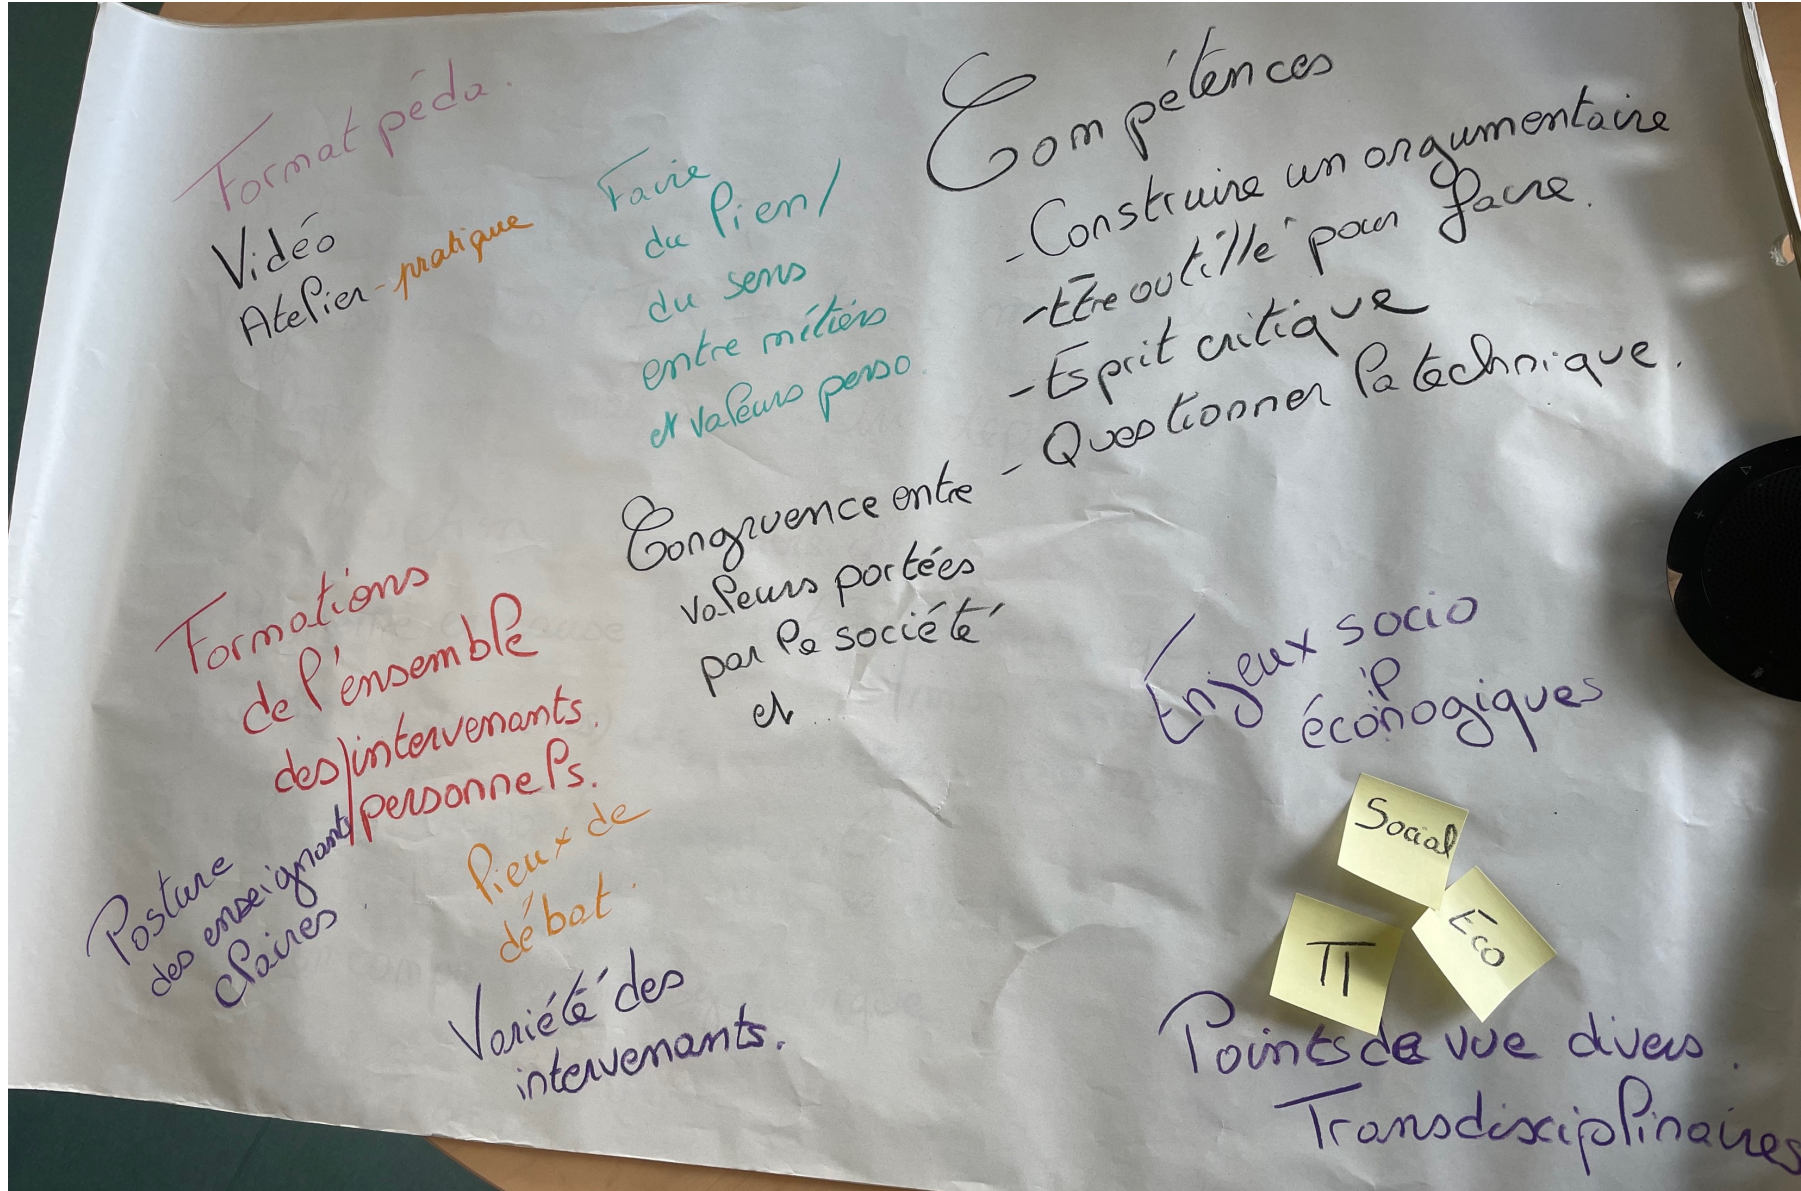 Format péda.
Vidéo
Atelier-pratique
Faire
du lien/
du sens
entre métiers
et valeurs perso.
Compétences
- Construire un argumentaire
- Être outillé pour faire.
- Esprit critique
- Questionner la technique.
Congruence entre
valeurs portées
par la société
et ...
Formations
de l'ensemble
des/intervenants.
/personnels.
Posture
des enseignants
claires
lieux de
débat.
Variété des
intervenants.
Enjeux socio
Social
Eco
TI
Points de vue divers.
Transdisciplinaires